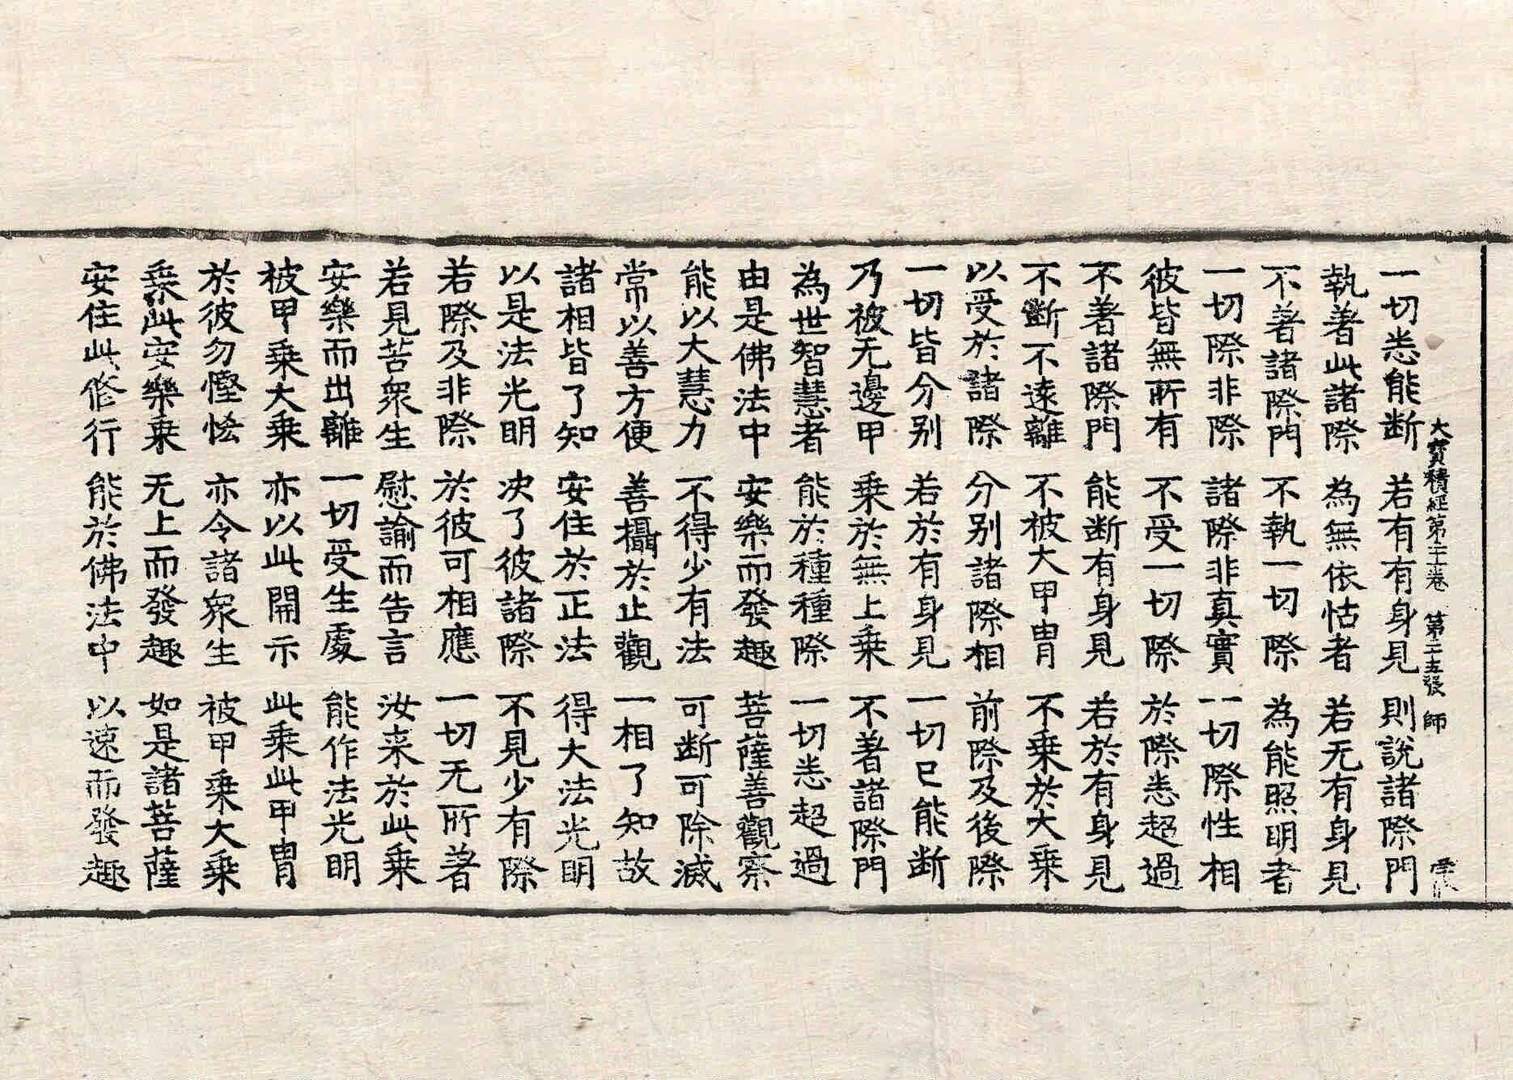 大寶積經第卷 第二五張 師
一切悉能断 若有有身見 則說諸際門
執著此諸際 為無依怙者 若无有身見
不著諸際門 不執一切際 為能照明者
一切際非際 諸際非真實 一切際性相
彼皆無所有 不受一切際 於際悉超過
不著諸際門 能断有身見 若於有身見
不斷不遠離 不被大甲胄 不乘於大乘
以受於諸際 分别諸際相 前際及後際
一切皆分别 若於有身見 一切已能断
乃被无邊甲 乘於無上乘 不著諸際門
為世智慧者 能於種種際 一切悉超過
由是佛法中 安樂而發趣 菩薩善觀察
能以大慧力 不得少有法 可断可除滅
常以善方便 善攝於止觀 一相了知故
諸相皆了知 安住於正法 得大法光明
以是法光明 决了彼諸際 不見少有際
若際及非際 於彼可相應 一切无所著
若見苦衆生 慰諭而告言 汝来於此乘
安樂而出離 一切受生處 能作法光明
被甲乘大乘 亦以此開示 此乘此甲胄
於彼勿慳悋 亦令諸衆生 被甲乘大乘
乘此安樂乘 无上而發趣 如是諸菩薩
安住此修行 能於佛法中 以速而發趣